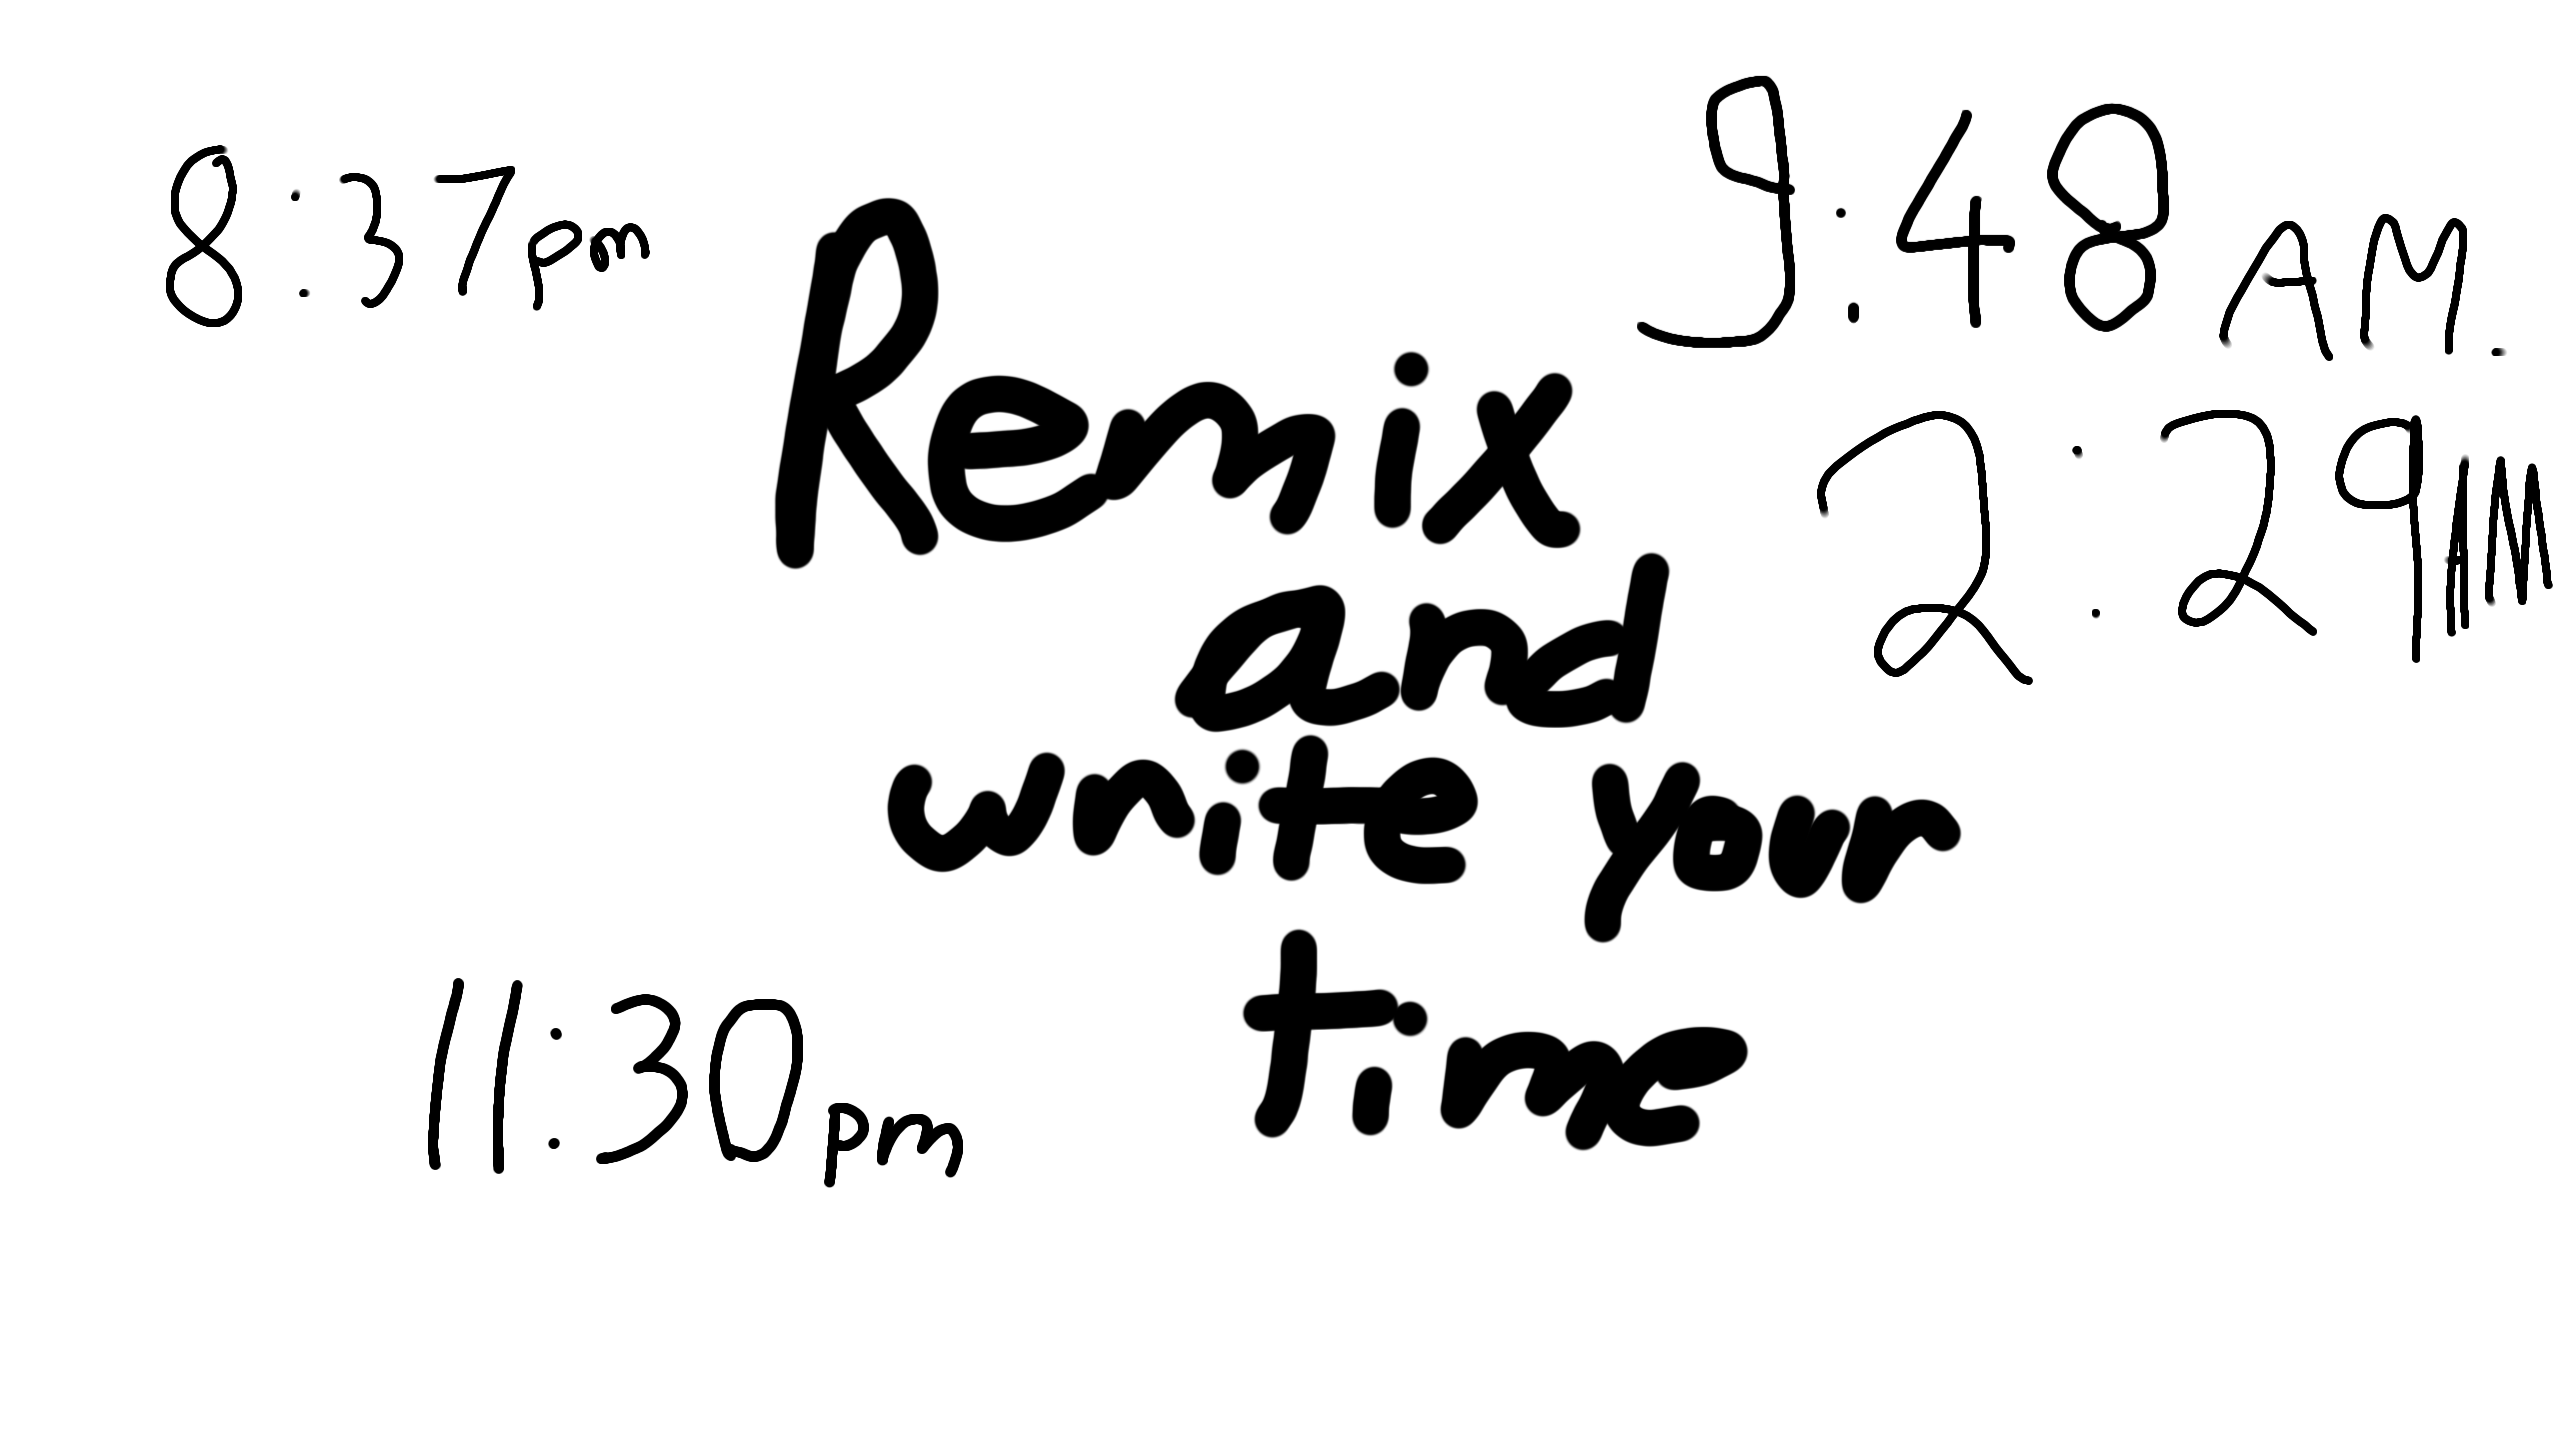 8:37pm
9:48 AM.
Remix
and
write your
time
2:29AM
11:30pm